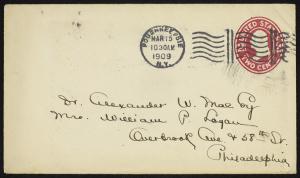 POUGHKEEPSIE
MAR 15
10 30 AM
1909
N.Y.
UNITED STATES
TWO CENTS
Dr. Alexander W. Mac Coy
Mrs. William P. Logan
Overbrook Ave & 58th St.
Philadelphia